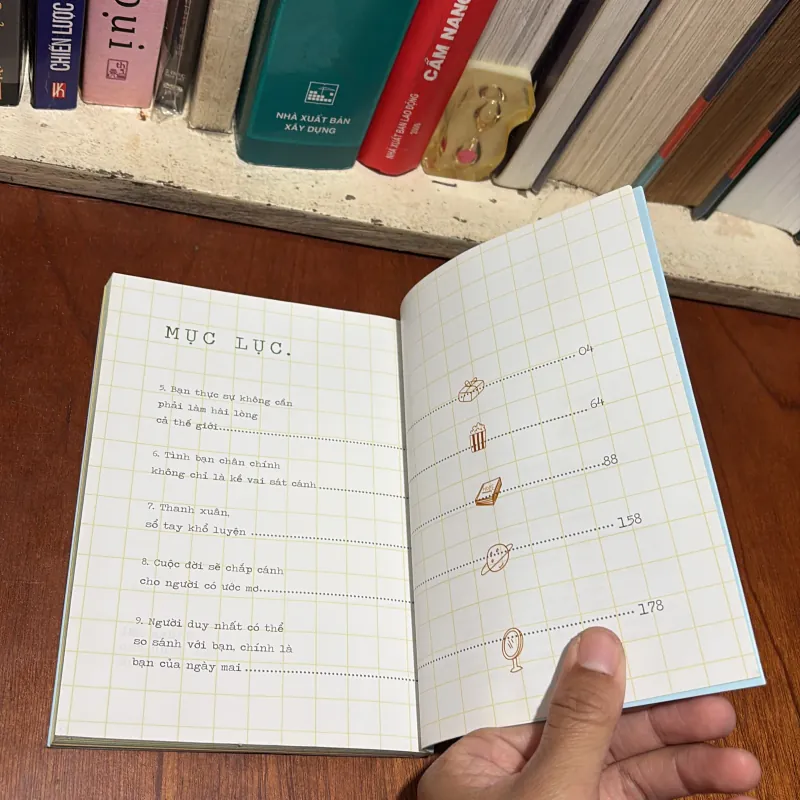 CHIẾN LƯỢC
DỊU
NHÀ XUẤT BẢN
XÂY DỰNG
CẨM NANG
NHÀ XUẤT BẢN LAO ĐỘNG
MỤC LỤC.
5. Bạn thực sự không cần
phải làm hài lòng
cả thế giới 04
6. Tình bạn chân chính
không chỉ là kề vai sát cánh 64
7. Thanh xuân,
sổ tay khổ luyện 88
8. Cuộc đời sẽ chắp cánh
cho người có ước mơ 158
9. Người duy nhất có thể
so sánh với bạn, chính là
bạn của ngày mai 178